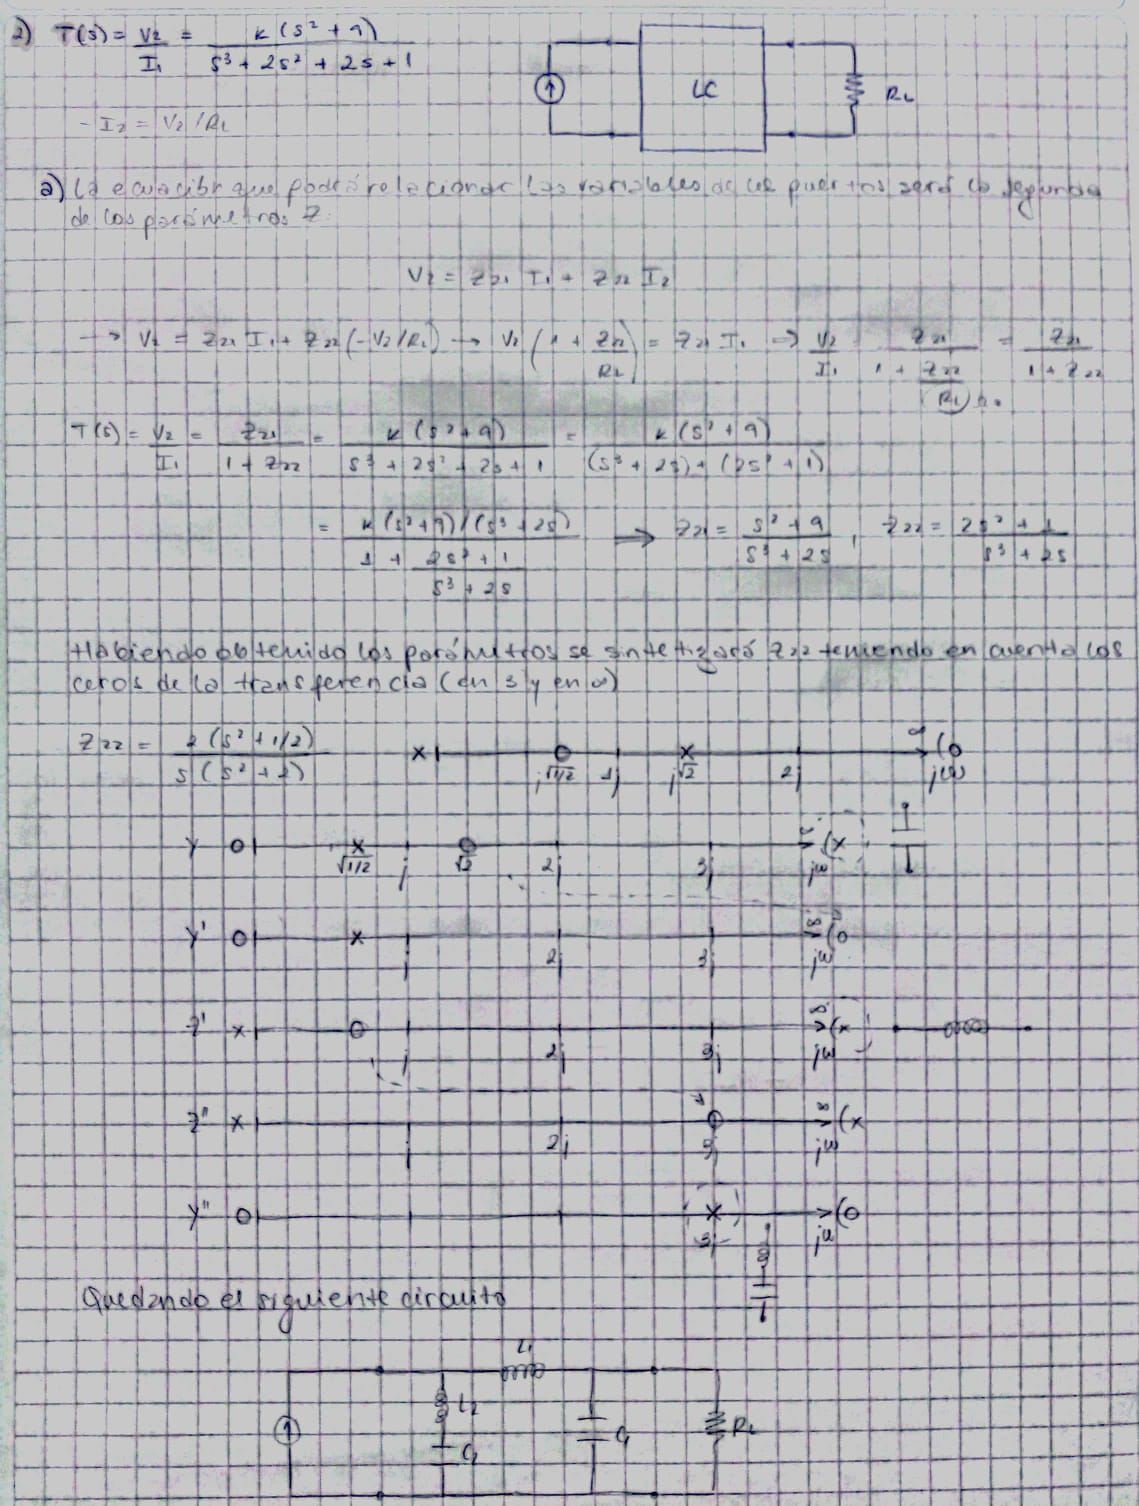 2) T(s) = V2/I1 = k(s² + 9)/(s³ + 2s² + 2s + 1)
LC
RL
-I2 = V2/RL
a) La ecuación que podrá relacionar las variables de los puertos será la segunda
de los parámetros Z:
V2 = Z21 I1 + Z22 I2
→ V2 = Z21 I1 + Z22 (-V2/RL) → V2 (1 + Z22/RL) = Z21 I1 ⇒ V2/I1 = Z21/(1 + Z22/RL) = Z21/(1 + Z22)
T(s) = V2/I1 = Z21/(1 + Z22) = k(s² + 9)/(s³ + 2s² + 2s + 1) = k(s² + 9)/((s³ + 2s) + (2s² + 1))
= (k(s² + 9)/(s³ + 2s))/(1 + (2s² + 1)/(s³ + 2s)) ⇒ Z21 = (s² + 9)/(s³ + 2s) , Z22 = (2s² + 1)/(s³ + 2s)
Habiendo obtenido los parámetros se sintetizará Z22 teniendo en cuenta los
ceros de la transferencia (en 3 y en ∞)
Z22 = 2(s² + 1/2)/(s(s² + 2))
j√1/2 1j j√2 2j ∞ jω
Y
√1/2 j √2 2j 3j jω
Y'
j 2j 3j ∞ jω
Z'
j 2j 3j ∞ jω
Z''
j 2j 3j ∞ jω
Y''
3j jω
Quedando el siguiente circuito
L1
L2
C1
RL